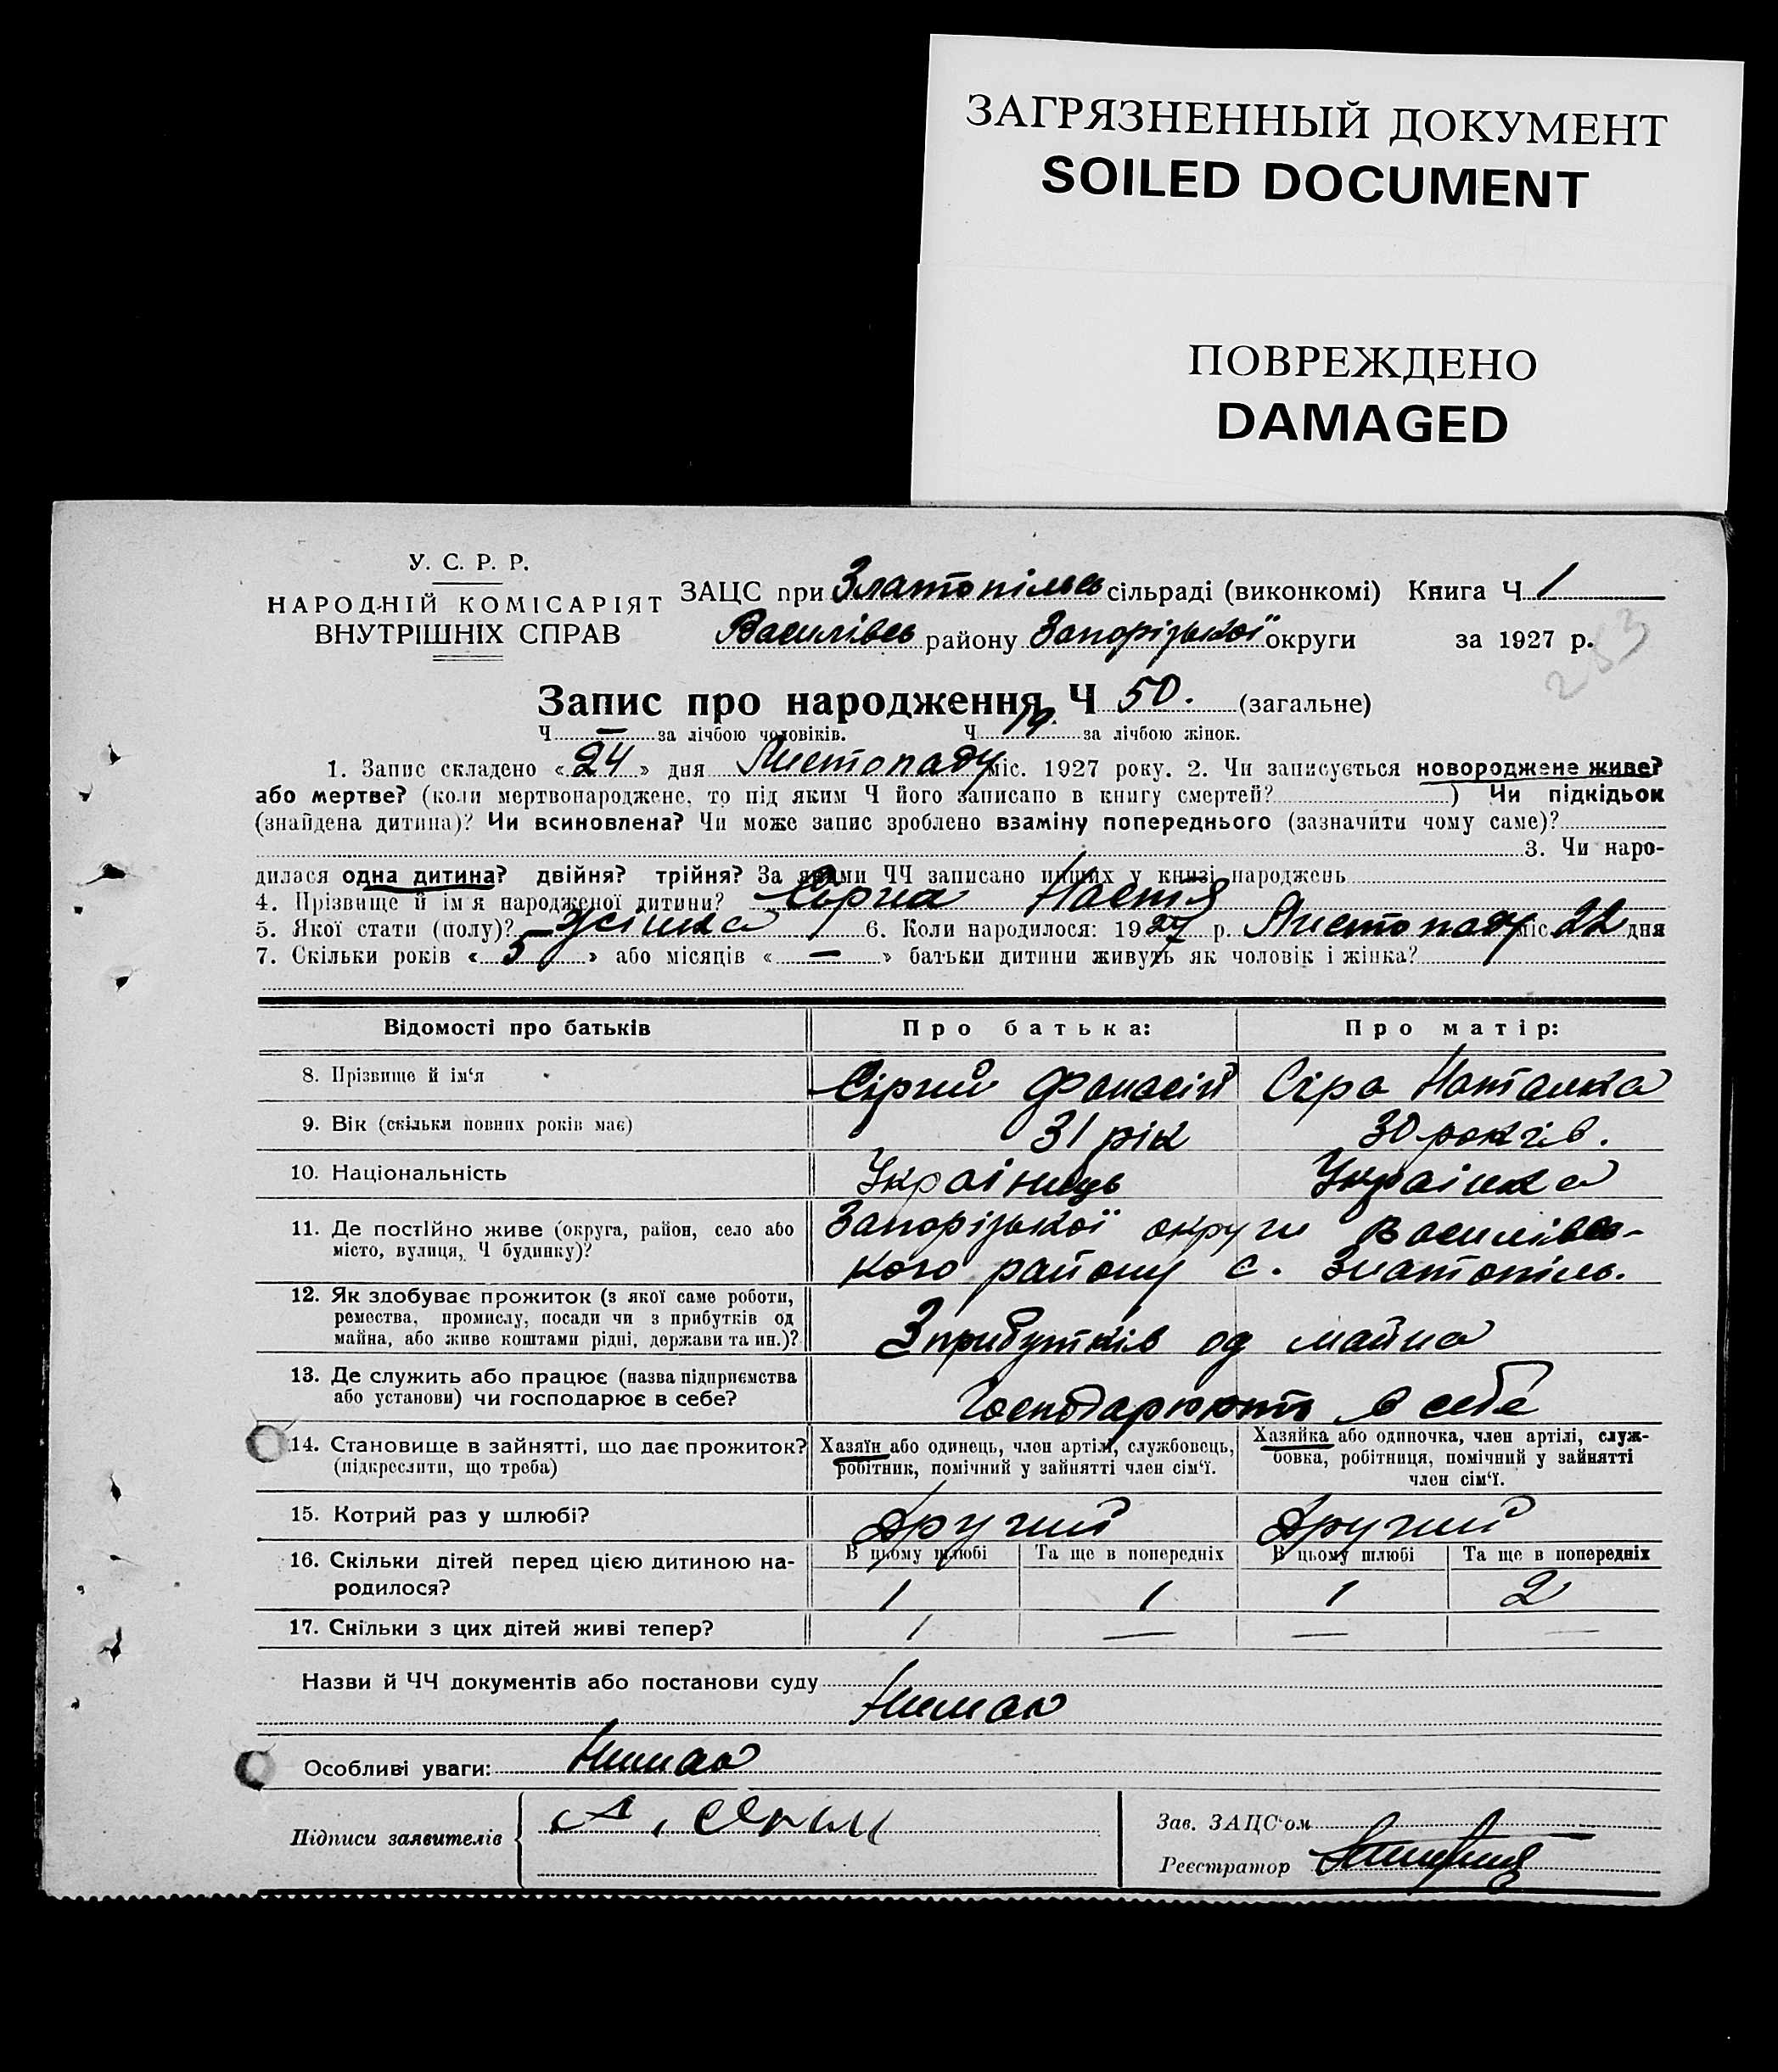 ЗАГРЯЗНЕННЫЙ ДОКУМЕНТ
SOILED DOCUMENT
ПОВРЕЖДЕНО
DAMAGED
У. С. Р. Р.
НАРОДНІЙ КОМІСАРІЯТ
ВНУТРІШНІХ СПРАВ
ЗАЦС при Златопільсь сільраді (виконкомі) Книга Ч 1
Василівсь району Запорізької округи за 1927 р.
253
Запис про народження Ч 50. (загальне)
Ч — за лічбою чоловіків. Ч 19. за лічбою жінок.
1. Запис складено «24» дня Листопаду міс. 1927 року. 2. Чи записується новороджене живе?
або мертве? (коли мертвонароджене, то під яким Ч його записано в книгу смертей? ) Чи підкідьок
(знайдена дитина)? Чи всиновлена? Чи може запис зроблено взаміну попереднього (зазначити чому саме)?
3. Чи наро-
дилася одна дитина? двійня? трійня? За якими ЧЧ записано инших у книзі народжень
4. Прізвище й ім'я народженої дитини? Настя
5. Якої стати (полу)? Жінка 6. Коли народилося: 1927 р. Листопаду міс. 22 дня
7. Скільки років «5» або місяців «—» батьки дитини живуть як чоловік і жінка?
Відомості про батьків Про батька: Про матір:
8. Прізвище й ім‘я Сірий Фанасій Сіра Наталка
9. Вік (скільки повних років має) 31 рік 30 років.
10. Національність Украінець Украінка
11. Де постійно живе (округа, район, село або Запорізької округи Василівсь-
місто, вулиця, Ч будинку)? кого району с. Златопіль.
12. Як здобуває прожиток (з якої саме роботи,
ремества, промислу, посади чи з прибутків од
майна, або живе коштами рідні, держави та ин.)? З прибутків од майна
13. Де служить або працює (назва підприємства
або установи) чи господарює в себе? Господарюють в себе
14. Становище в зайнятті, що дає прожиток? Хазяїн або одинець, член артілі, службовець, Хазяйка або одиночка, член артілі, служ-
(підкреслити, що треба) робітник, помічний у зайнятті член сім‘ї. бовка, робітниця, помічний у зайнятті
член сім‘ї.
15. Котрий раз у шлюбі? Другий Другий
16. Скільки дітей перед цією дитиною на- В цьому шлюбі Та ще в попередніх В цьому шлюбі Та ще в попередніх
родилося? 1 1 1 2
17. Скільки з цих дітей живі тепер? 1 — — —
Назви й ЧЧ документів або постанови суду
Нимає
Особливі уваги: Нимає
Підписи заявителів
Зав. ЗАЦС‘ом
Реєстратор